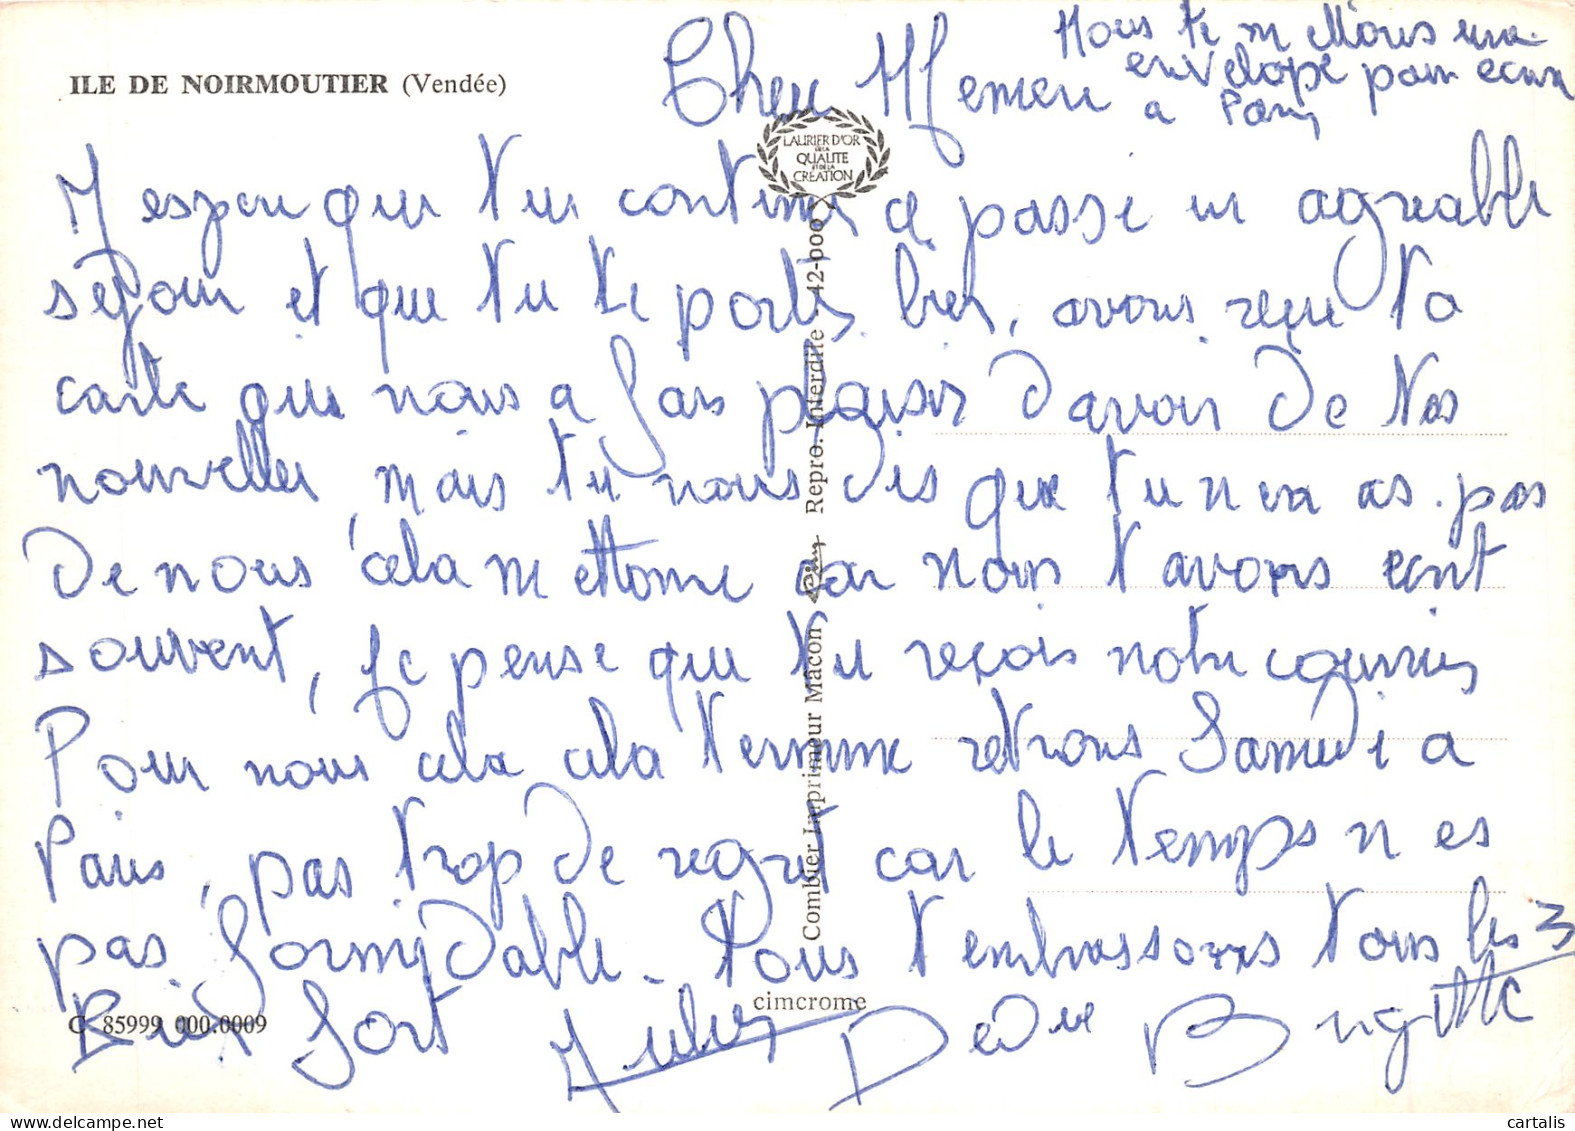 ILE DE NOIRMOUTIER (Vendée)
Nous te mettons une
envelope pour ecrire
a Paris
Cher Memere
LAURIER D'OR
DE LA
QUALITE
ET DE LA
CREATION
J espere que tu continue a passe un agreable
sejour et que tu te portes bien, avons reçu ta
carte que nous a fais plaisir d avoir de tes
nouvelles, mais tu nous dis que tu n en as pas
de nous cela m ettonne car nous t avons ecrit
souvent, je pense que tu reçois notre courrier
Pour nous cela cela termine retrons Samedi a
Paris, pas trop de regret car le temps n es
pas formidable. Nous t embrassons tous les 3
Bien fort
Dedee Brigitte
Combier Imprimeur Mâcon
Repro. Interdite - 42-000
C 85999 000.0009
cimcrome
cartalis